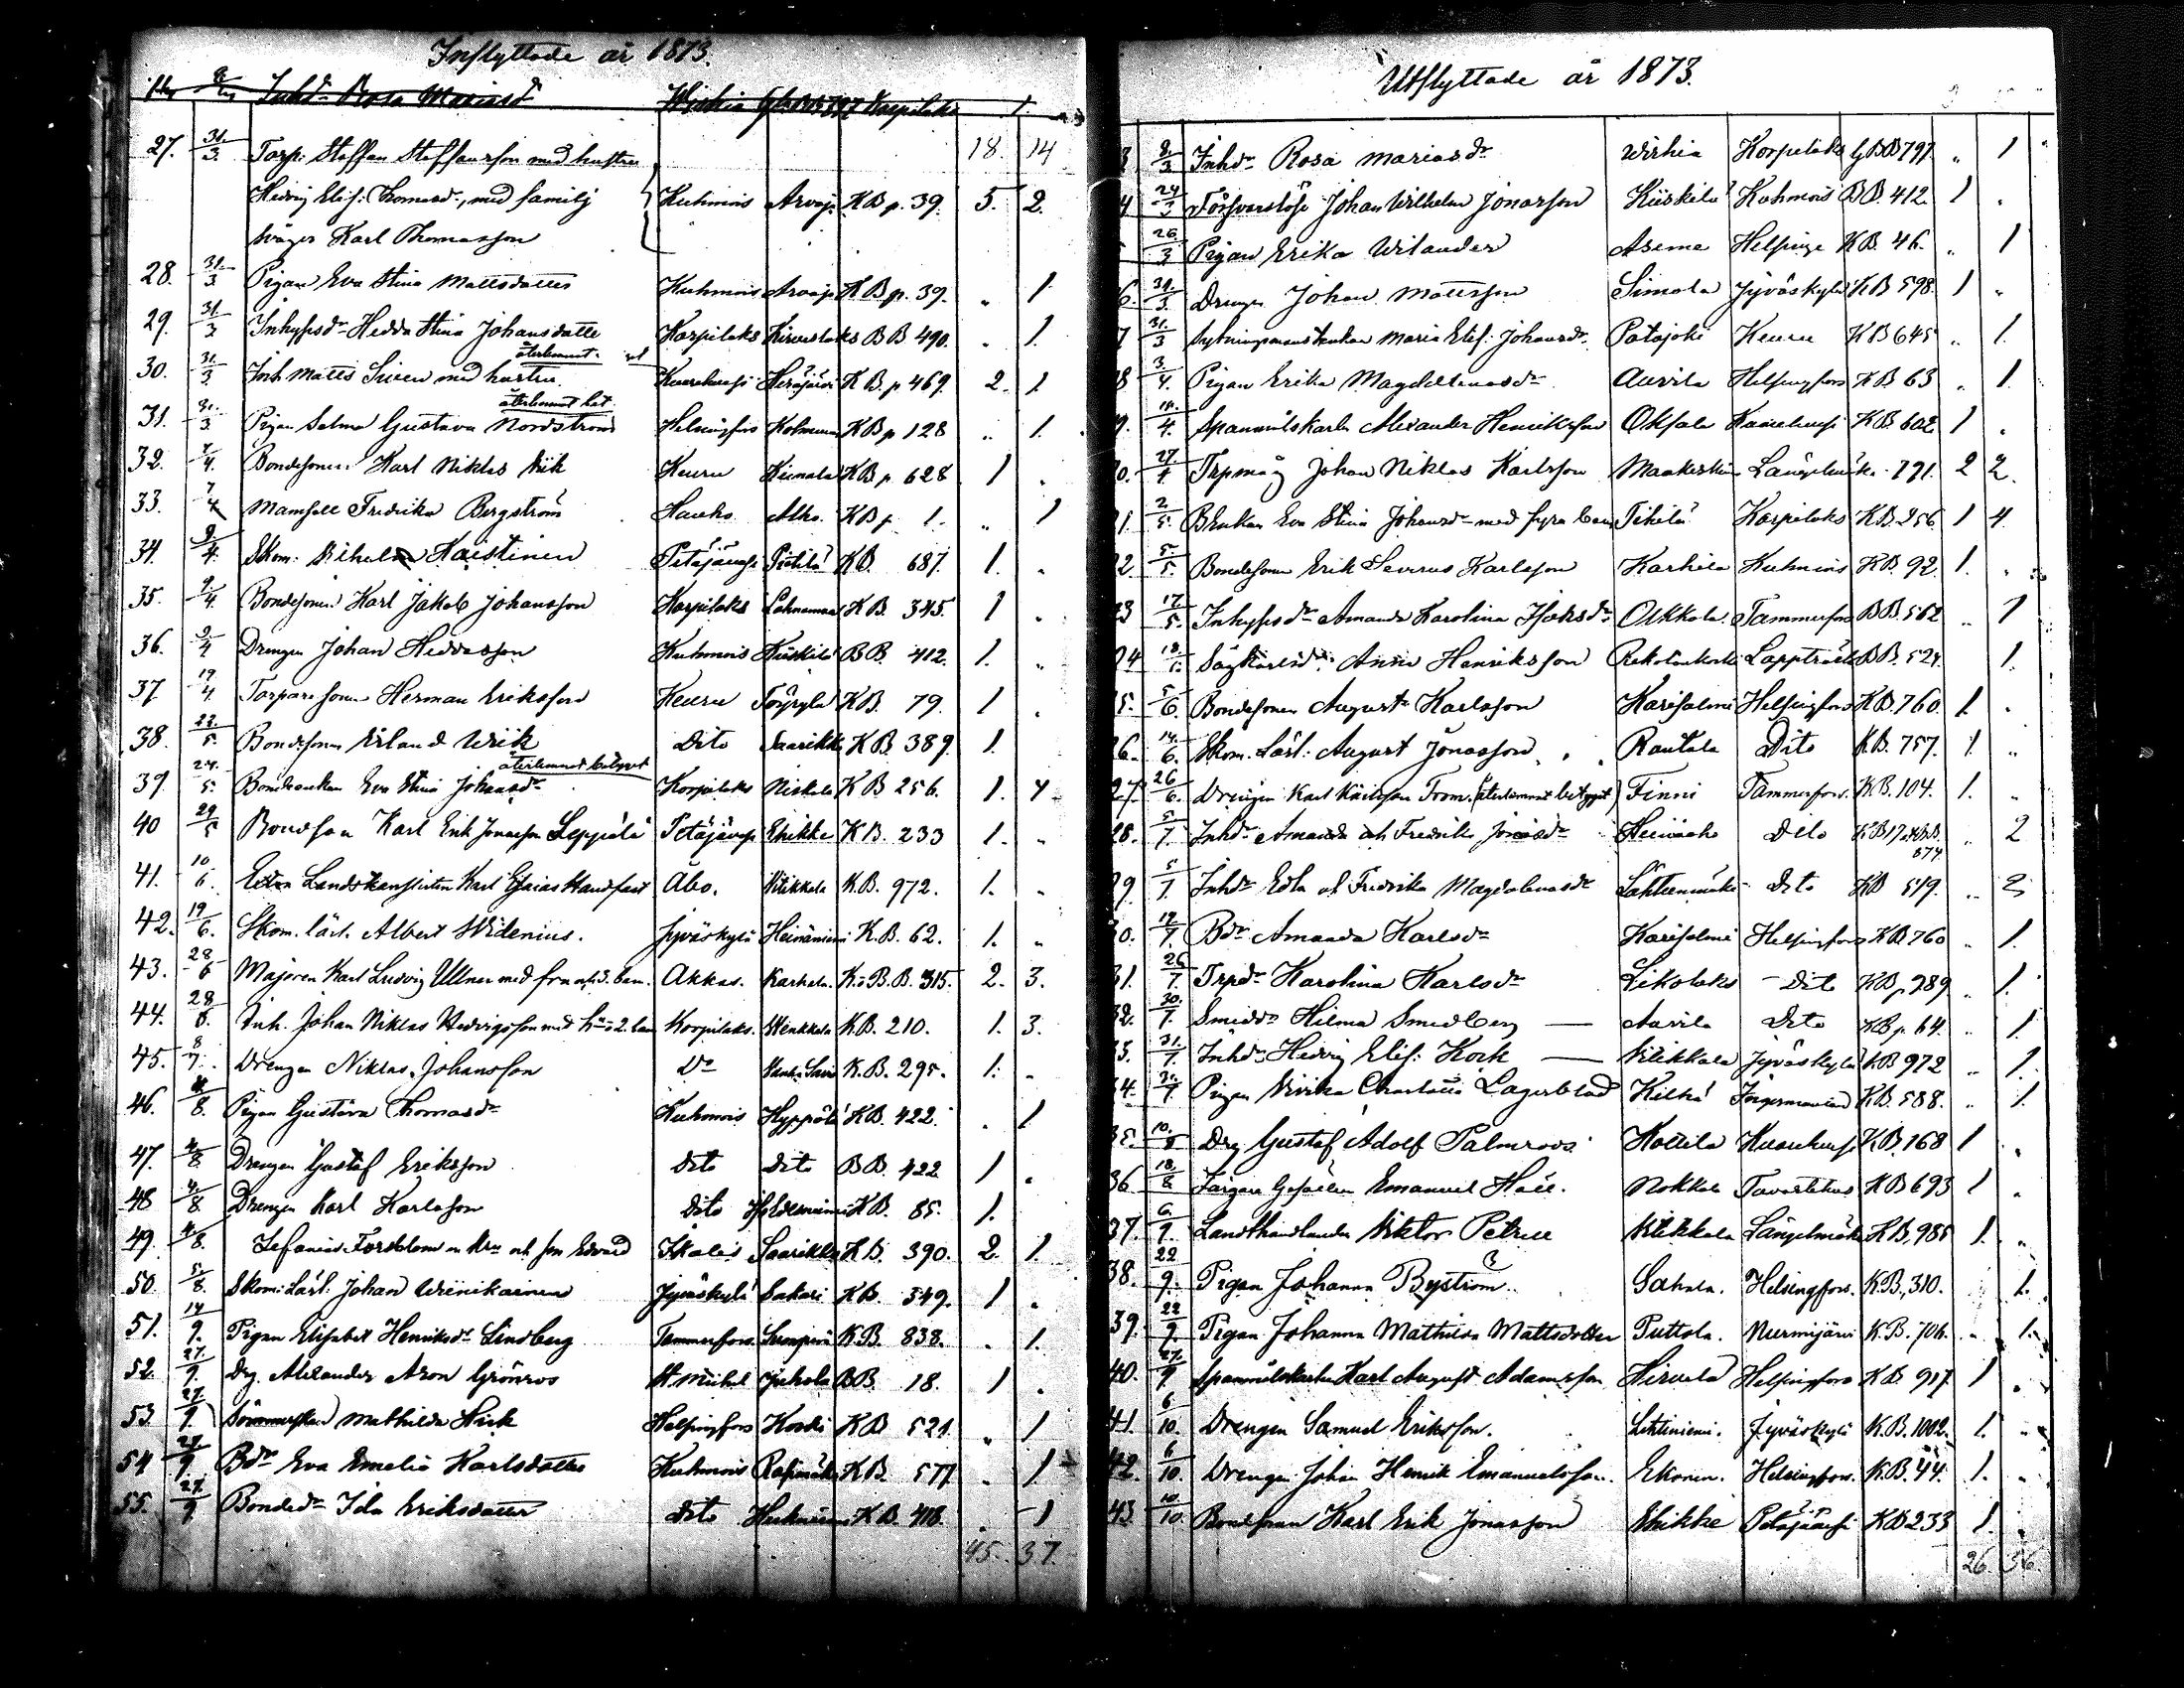 Inflyttade år 1873.
Inhd:r Rosa Mariasd:r Wirhia GlBB 797 Korpilaks 1.
18. 14
27. 31/3. Torp: Staffan Staffansson med hustru
Hedvig Elis: Thomasd:r, med familj Kuhmois Arvaja KB p. 39. 5. 2.
svåger Karl Thomasson
28. 31/3 Pigan Eva Stina Mattsdotter Kuhmois Arvaja KB p. 39. „ 1.
29. 31/3 Inhysesd:r Hedda Stina Johansdotter Korpilaks BB 490. „ 1.
återlemnat
30. 31/3. Inh. Matts Siren med hustru. KB p 469. 2. 1
återlemnat bet.
31. 31/3 Pigan Selma Gustava Nordström Helsingfors KB p 128 „ 1.
32. 7/4. Bondesonen Karl Niklas Wik Keuru Keimala KB p. 628 1 „
33. 7/4 Mamsell Fredrika Bergström Hauho Alho. KB p. 1. „ 1
34. 9/4. Skom. Wilhelm Kaistinen Petäjävesi Pietilä KB. 687. 1. „
35. 9/4. Bondesonen Karl Jakob Johansson Korpilaks KB. 345. 1 „
36. 9/4 Drengen Johan Heddasson Kuhmois Kiiskilä BB. 412. 1. „
37 19/4. Torparesonen Herman Eriksson Keuru KB. 79. 1 „
38. 22/5. Bondesonen Erland Wiik Dito Saarikko KB. 389. 1.
återlemnat betyget
39. 24/5. Bondeenkan Eva Stina Johansd:r Korpilaks Niskala KB 256. 1. 4
40 29/5 Bondson Karl Erik Jonasson Leppälä Petäjävesi KB. 233 1. „
41. 10/6. Landskanslisten Karl Esaias Handfast Åbo. Witikkala KB. 972. 1. „
42. 19/6. Skom. lärl. Albert Widenius. Jyväskylä Heinäniemi K.B. 62. 1. „
43. 28/6 Majoren Karl Ludvig Ullner med fru och 3. barn. Akkas. Karhula. K. o B.B. 315. 2. 3.
44. 28/6. Inh. Johan Niklas Hedvigsson med h:u o 2. barn Korpilaks. KB. 210. 1. 3.
45. 8/7. Drengen Niklas Johansson D:o K.B. 295. 1. „
46. 4/8. Pigan Gustava Thomasd:r Kuhmois Hyppölä KB. 422. „ 1
47. 4/8 Drengen Gustaf Eriksson Dito Dito BB. 422 1 „
48 4/8. Drengen Karl Karlsson Dito KB. 85. 1.
49. 4/8. Forsblom m hu och son Edvard Ikalis Saarikko KB. 390. 2. 1.
50. 5/8. Skom: Lärl: Johan Wiinikainen Jyväskylä Sakari KB. 349. 1 „
51. 14/9. Pigan Elisabet Henriksd:r Lindberg Tammerfors KB. 838. „ 1.
52. 27/9. Drg. Alexander Aron Grönros St. Michel Juhola BB. 18. 1 „
53. 27/9. Mathilda Helsingfors KB 521. „ 1
54 27/9 Bd:r Eva Emelia Karlsdotter Kuhmois KB 577 „ 1
55. 27/9 Bonded:r Ida Eriksdotter Dito KB. 418. „ 1
45. 37.
Utflyttade år 1873.
8/3 Inhd:r Rosa Mariasd:r Wirhia Korpilaks GlBB 797. „ 1
24/3 Försvarslöse Johan Wilhelm Jonasson Kiiskilä Kuhmois BB. 412. 1 „
26/3 Pigan Erika Wilander Aseme Helsinge KB. 46. „ 1
31/3. Drengen Johan Mattsson Simola Jyväskylä KB 598. 1 „
31/3 Sytningsmansenkan Maria Elis: Johansd:r Patajoki Keuru KB 645 „ 1.
3/4. Pigan Erika Magdalenasd:r Auvila Helsingfors KB 63 „ 1.
14/4. Spanmålskarlen Alexander Henriksson Oksala KB 602 1 „
27/4. Trpmåg Johan Niklas Karlsson Längelmäki 791. 2 2.
2/5. BEnkan Eva Stina Johansd:r med fyra barn Korpilaks KB. 256. 1 4.
5/5. Bondesonen Erik Severus Karlsson Karhula Kuhmois KB. 92. 1. „
17/5. Inhysesd:r Amanda Karolina Isaksd:r Ukkola. Tammerfors BB. 562 „ 1
Henriksson Lappträsk BB. 524. 1.
5/6. Bondesonen August Karlsson Karisalmi Helsingfors KB. 760. 1. „
14/6. Skom. Lärl: August Jonasson Rautala Dito KB. 757. 1 „
27. 26/6. Drengen Karl Karlsson From. (återlemnat betyget) Finni Tammerfors. KB. 104. 1. „
28. 5/7. Inhd:r Amanda och Fredrika Jonasd:r Dito 874 „ 2
5/7. Inhd:r Edla och Fredrika Magdalenasd:r Lähteenmäki Dito KB 549. „ 2
19/7. Bd:r Amanda Karlsd:r Karisalmi Helsingfors KB 760 „ 1.
31. 26/7. Trpd:r Karolina Karlsd:r Dito KB p. 289. „ 1.
32. 30/7. Smedd:r Hilma Smedberg — Auvila Dito KB p. 64. „ 1.
33. 31/7. Inhd:r Hedvig Elis: Kock — Witikkala Jyväskylä KB 972 „ 1.
34. 31/7. Pigan Wivika Charlotta Lagerblad Ingermanland KB. 588. „ 1.
35. 10/8 Drg Gustaf Adolf Palmroos Kottila KB. 168 1 „
36 18/8. Färgare Gesällen Emanuel Häll. Nokkala Tavastehus KB 693 1 „
37. 6/9. Landthandlanden Viktor Petrell Witikkala Längelmäki KB. 985 1. „
38. 22/9. Pigan Johanna Byström. Sahala. Helsingfors. K.B. 310. 1.
39. 22/9. Pigan Johanna Mathilda Mattsdotter Puttola. Nurmijärvi K.B. 706. „ 1.
40. 27/9 Spanmålskarlen Karl August Adamsson Hirvelä Helsingfors KB. 917. 1 „
41. 6/10. Drengen Samuel Eriksson. Lehtiniemi. Jyväskylä K.B. 1002. 1. „
42. 6/10. Drengen Johan Henrik Emanuelsson. Ekonen. Helsingfors. K.B. 44. 1. „
43 10/10. Bondsonen Karl Erik Jonasson Petäjävesi KB 233 1. „
26. 36.